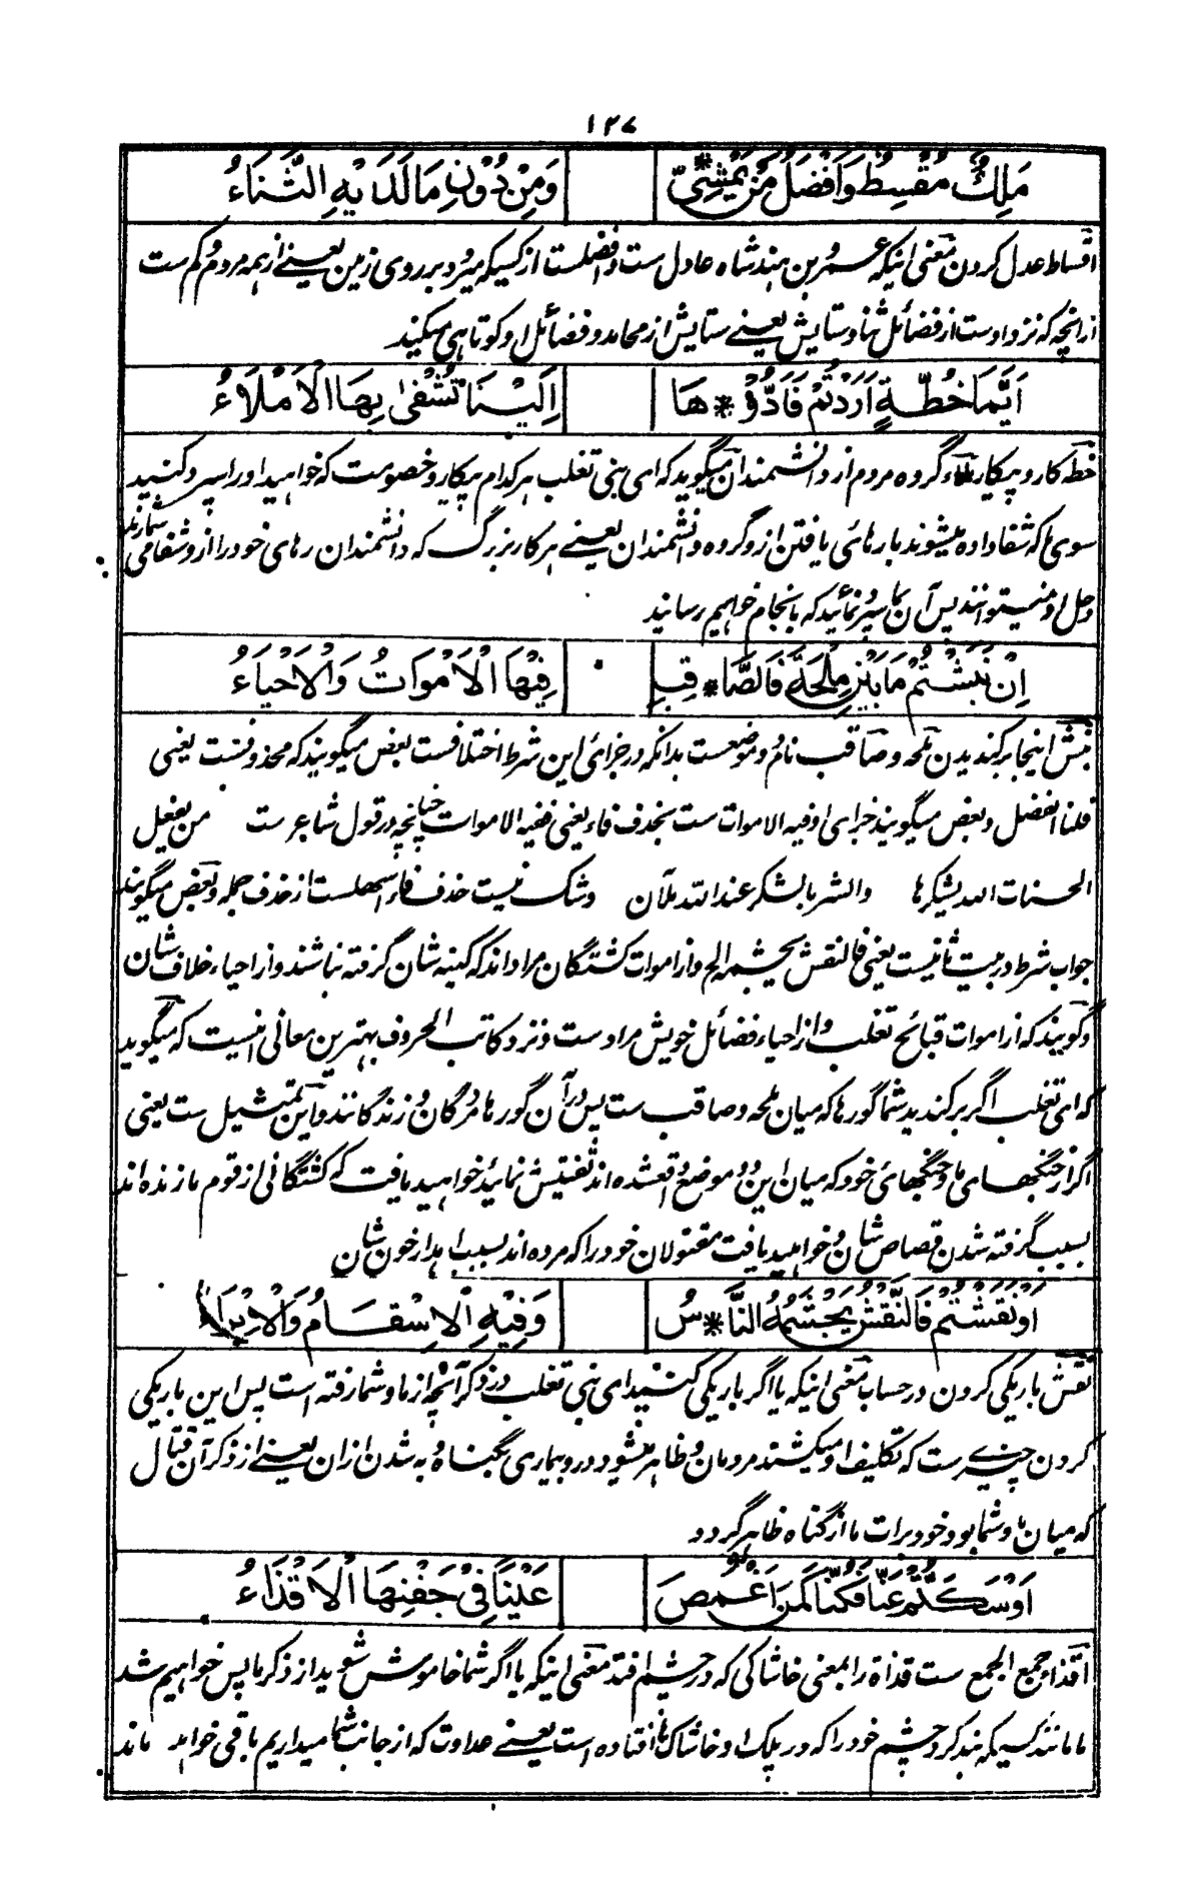 ۱۲۷
مَلِكٌ مُقْسِطٌ وَاَفْضَلُ مَنْ يَمْشِيْ * وَمِنْ دُوْنِ مَا لَدَيْهِ الثَّنَاءُ
اقساط عدل کردن معنی اینکه عمرو بن هند شاه عادل ست و افضلست از کسیکه میرود بر روی زمین یعنے از همه مردم و کم ست
ازانچه که نزد اوست از فضائل ثنا و ستایش یعنے ستایش از محامد و فضائل او کوتاهی میکند
اَيَّمَا خُطَّةٍ اَرَدْتُمْ فَاَدُّوْ * هَا اِلَيْنَا تُشْفٰى بِهَا الْاَمْلَاءُ
خطه کار و پیکار ملاء گروه مردم از دانشمندان میگوید که ای بنی تغلب هر کدام پیکار و خصومت که خواهید اورا سپرد کنید
سوی ما که شفا داده میشوند بارهائی یافتن ازو گروه دانشمندان یعنے هر کار بزرگ که دانشمندان رهای خود را ازو شفا می شمارند
و حل او نمیتوانند پس آن بما سپرد نمائید که بانجام خواهیم رسانید
اِنْ نَبَشْتُمْ مَا بَيْنَ مِلْحَةَ فَالصَّا * قِبِ فِيْهَا الْاَمْوَاتُ وَالْاَحْيَاءُ
نبش اینجا برکندیدن ملحه و صاقب نام دو موضعست بدانکه در جزای این شرط اختلافست بعض میگویند که محذوفست یعنی
فلنا الفضل و بعض میگویند جزای او فیه الاموات ست بحذف فاء یعنی ففیه الاموات چنانچه در قول شاعر ست من یفعل
الحسنات الله یشکرها والشر بالشکر عند الله ملآن و شک نیست حذف فاء اسهلست از حذف جمله و بعض میگویند
جواب شرط در بیت ثانیست یعنی فالنقش یجشمه الخ و از اموات کشتگان مراد اند که کینه شان گرفته نباشند و از احیاء خلاف شان
و گویند که از اموات قبائح تغلب و از احیاء فضائل خویش مراد ست و نزد کاتب الحروف بهترین معانی اینست که میگوید
که ای تغلب اگر برکندید شما گورها که میان ملحه و صاقب ست پس در آن گورها مردگان و زندگانند و این تمثیل ست یعنی
اگر از جنگهای ما و جنگهائی خود که میان این دو موضع واقعشده اند تفتیش نمائید خواهید یافت که کشتگانی از قوم ما زنده اند
بسبب گرفته شدن قصاص شان و خواهید یافت مقتولان خود را که مرده اند بسبب اهدار خون شان
اَوْ نَقَشْتُمْ فَالنَّقْشُ يَجْشَمُهُ النَّا * سُ وَفِيْهِ الْاِسْقَامُ وَالْاِبْرَاءُ
نقش باریکی کردن در حساب معنی اینکه یا اگر باریکی کنید ای بنی تغلب در ذکر آنچه از ما و شما رفته است پس این باریکی
کردن چیزے ست که تکلیف او میکشند مردمان و ظاهر میشود درو بیماری بگناه و به شدن ازان یعنے از ذکر آن قتال
که میان ما و شما بود خود برات ما از گناه ظاهر گردد
اَوْ سَكَتُّمْ عَنَّا فَكُنَّا كَمَنْ اَغْمَضَ عَيْنًا فِيْ جَفْنِهَا الْاَقْذَاءُ
اقذاء جمع الجمع ست قذاة را بمعنی خاشاکی که در چشم افتد معنی اینکه یا اگر شما خاموش شوید از ذکر ما پس خواهیم شد
ما مانند کسیکه بند کرد چشم خود را که در پلک او خاشاکها افتاده است یعنے عداوت که از جانب شما میداریم باقی خواهد ماند